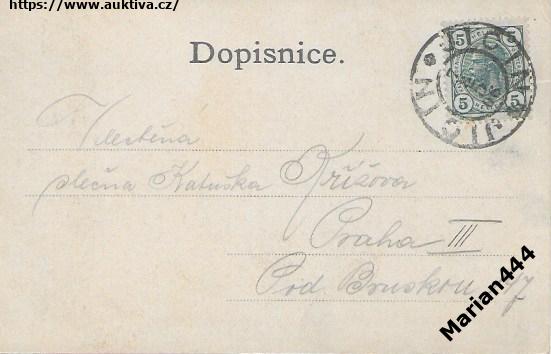 https://www.auktiva.cz/
Dopisnice.
5 5
5 5
JIČÍN
JIČÍN
Velectěná
slečna Katuška Křížova
Praha III
Pod Bruskou 7
Marian444